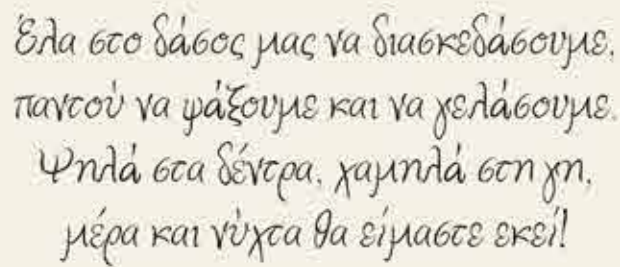 Έλα στο δάσος μας να διασκεδάσουμε,
παντού να ψάξουμε και να γελάσουμε.
Ψηλά στα δέντρα, χαμηλά στη γη,
μέρα και νύχτα θα είμαστε εκεί!